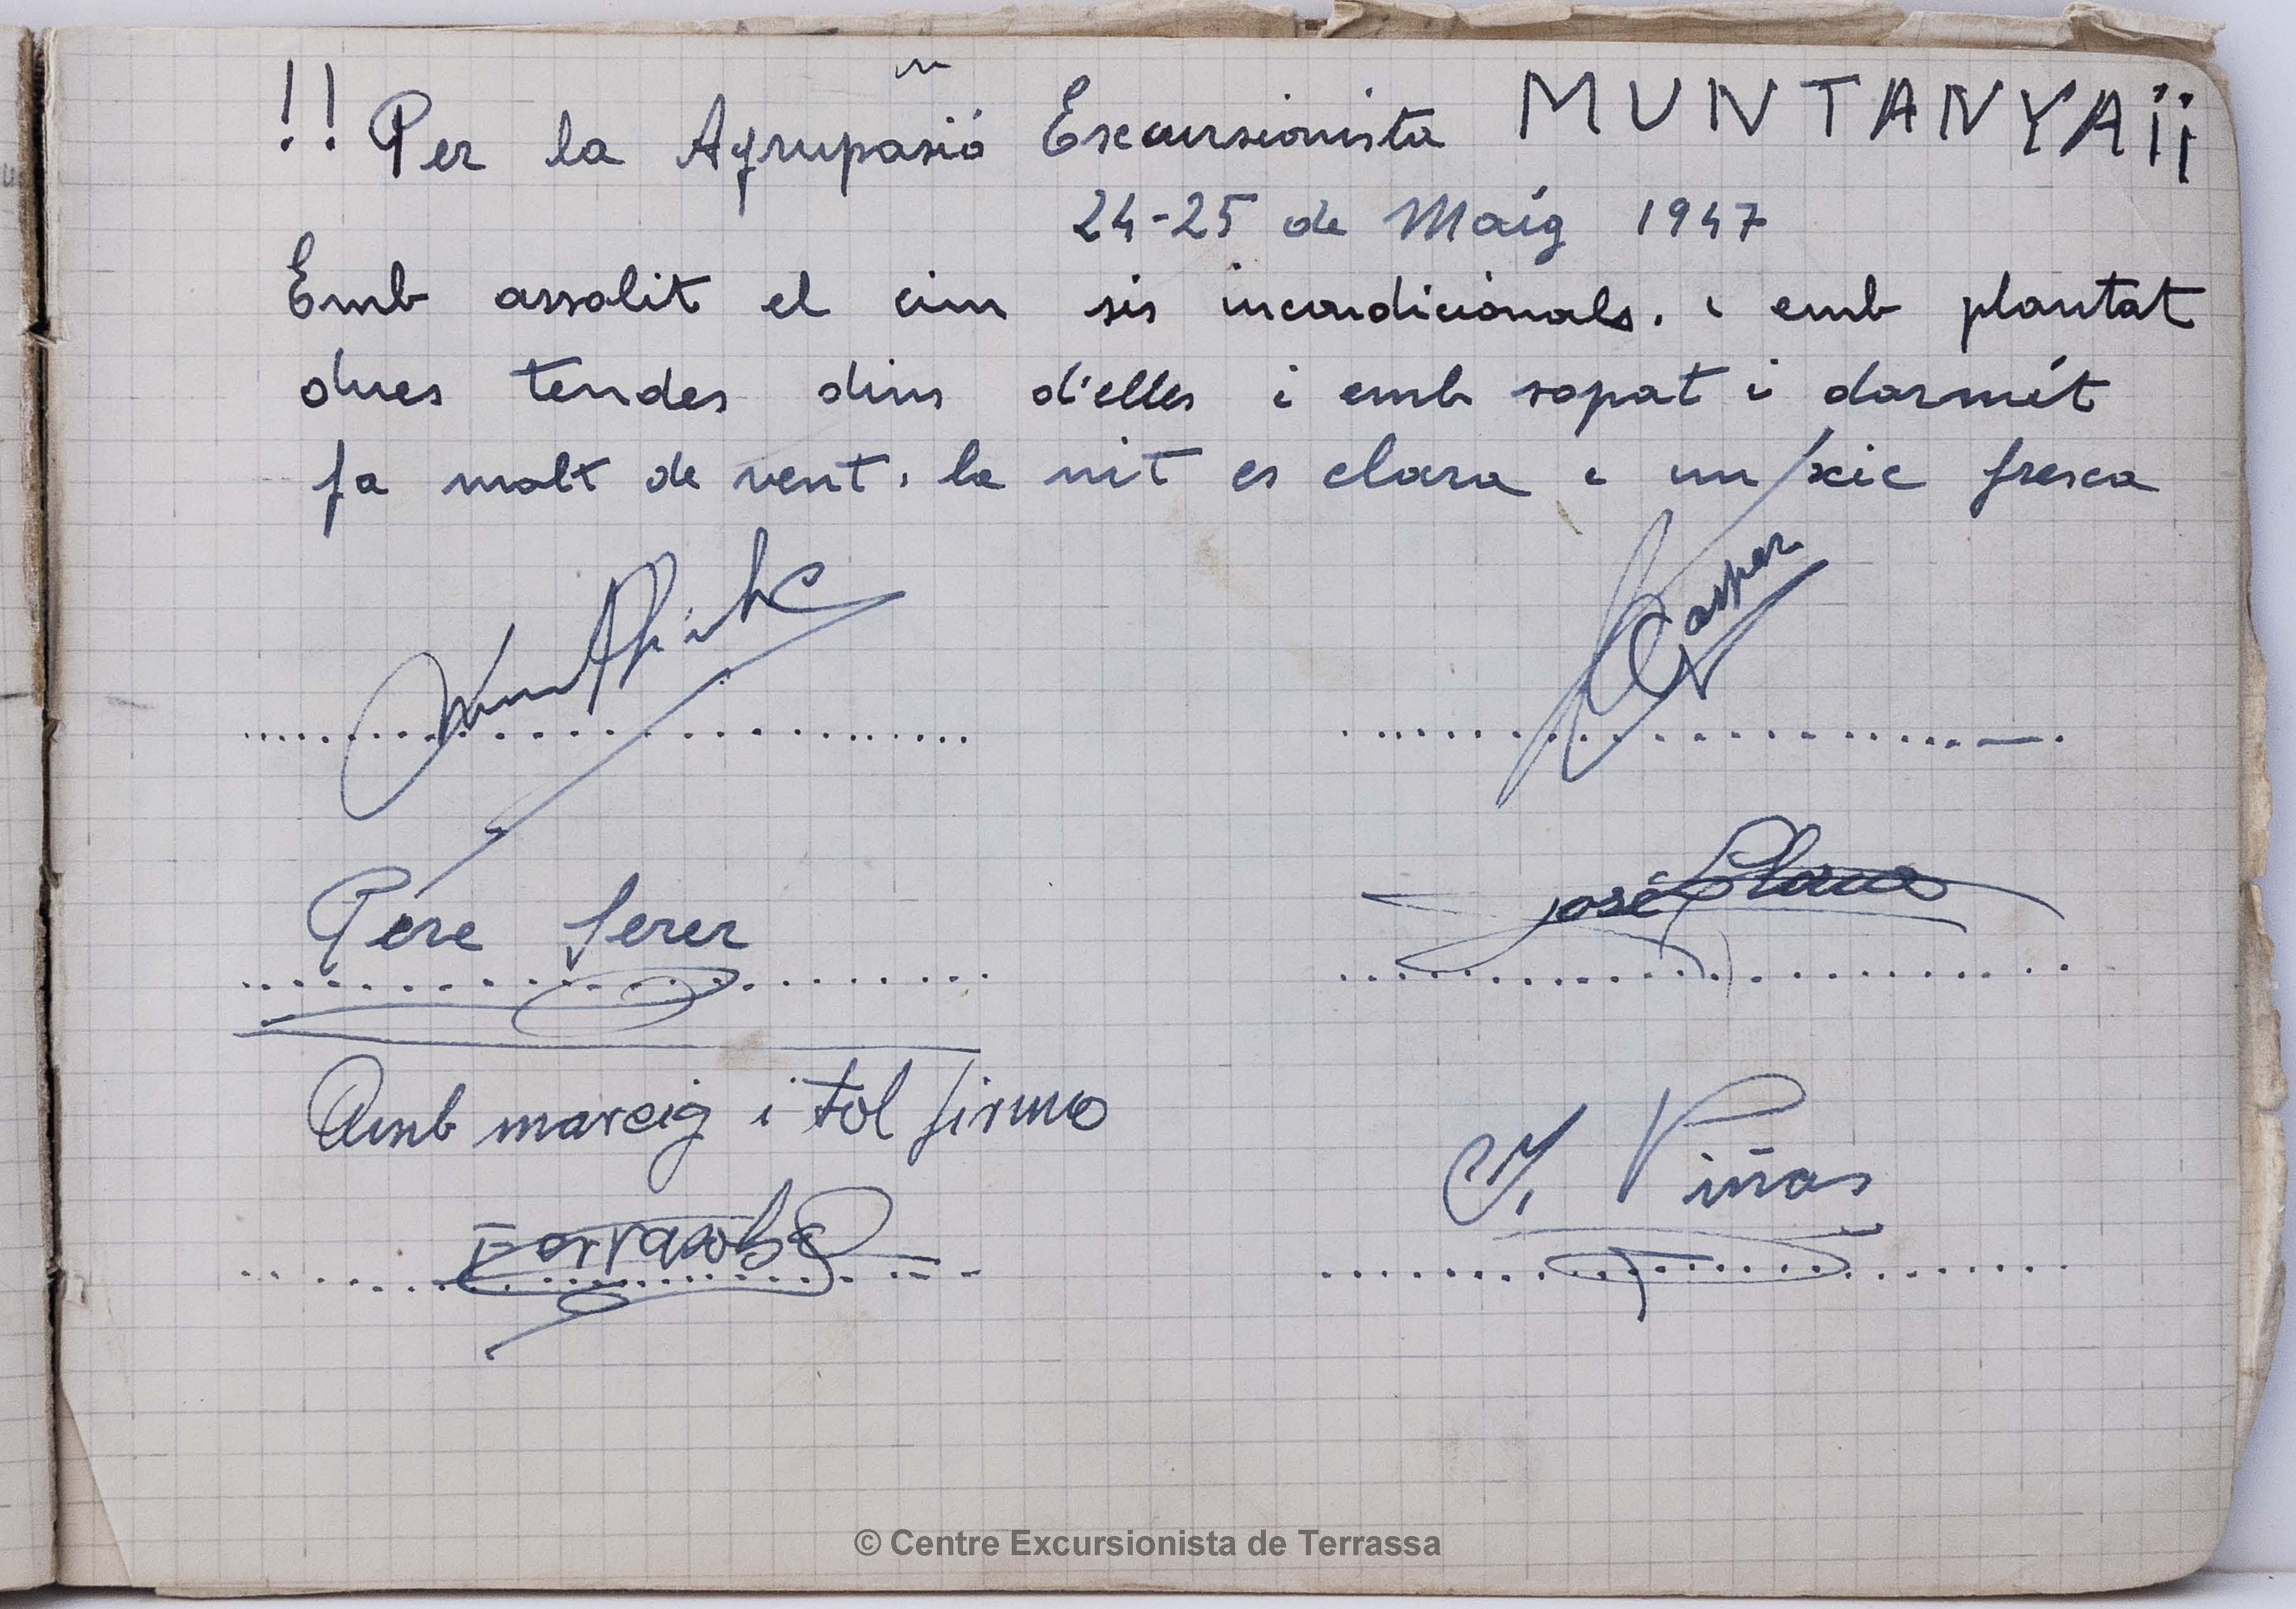 !! Per la Agrupasió Escursionista MUNTANYA¡¡
24-25 de Maig 1947
Emb assolit el cim sis incondicionals. i emb plantat
dues tendes dins d'elles i emb sopat i dormít
fa molt de vent, la nit es clara i un xic fresca
Gasper
Pere ferer
José
Amb mareig i tot firmo
J. Viñas
© Centre Excursionista de Terrassa